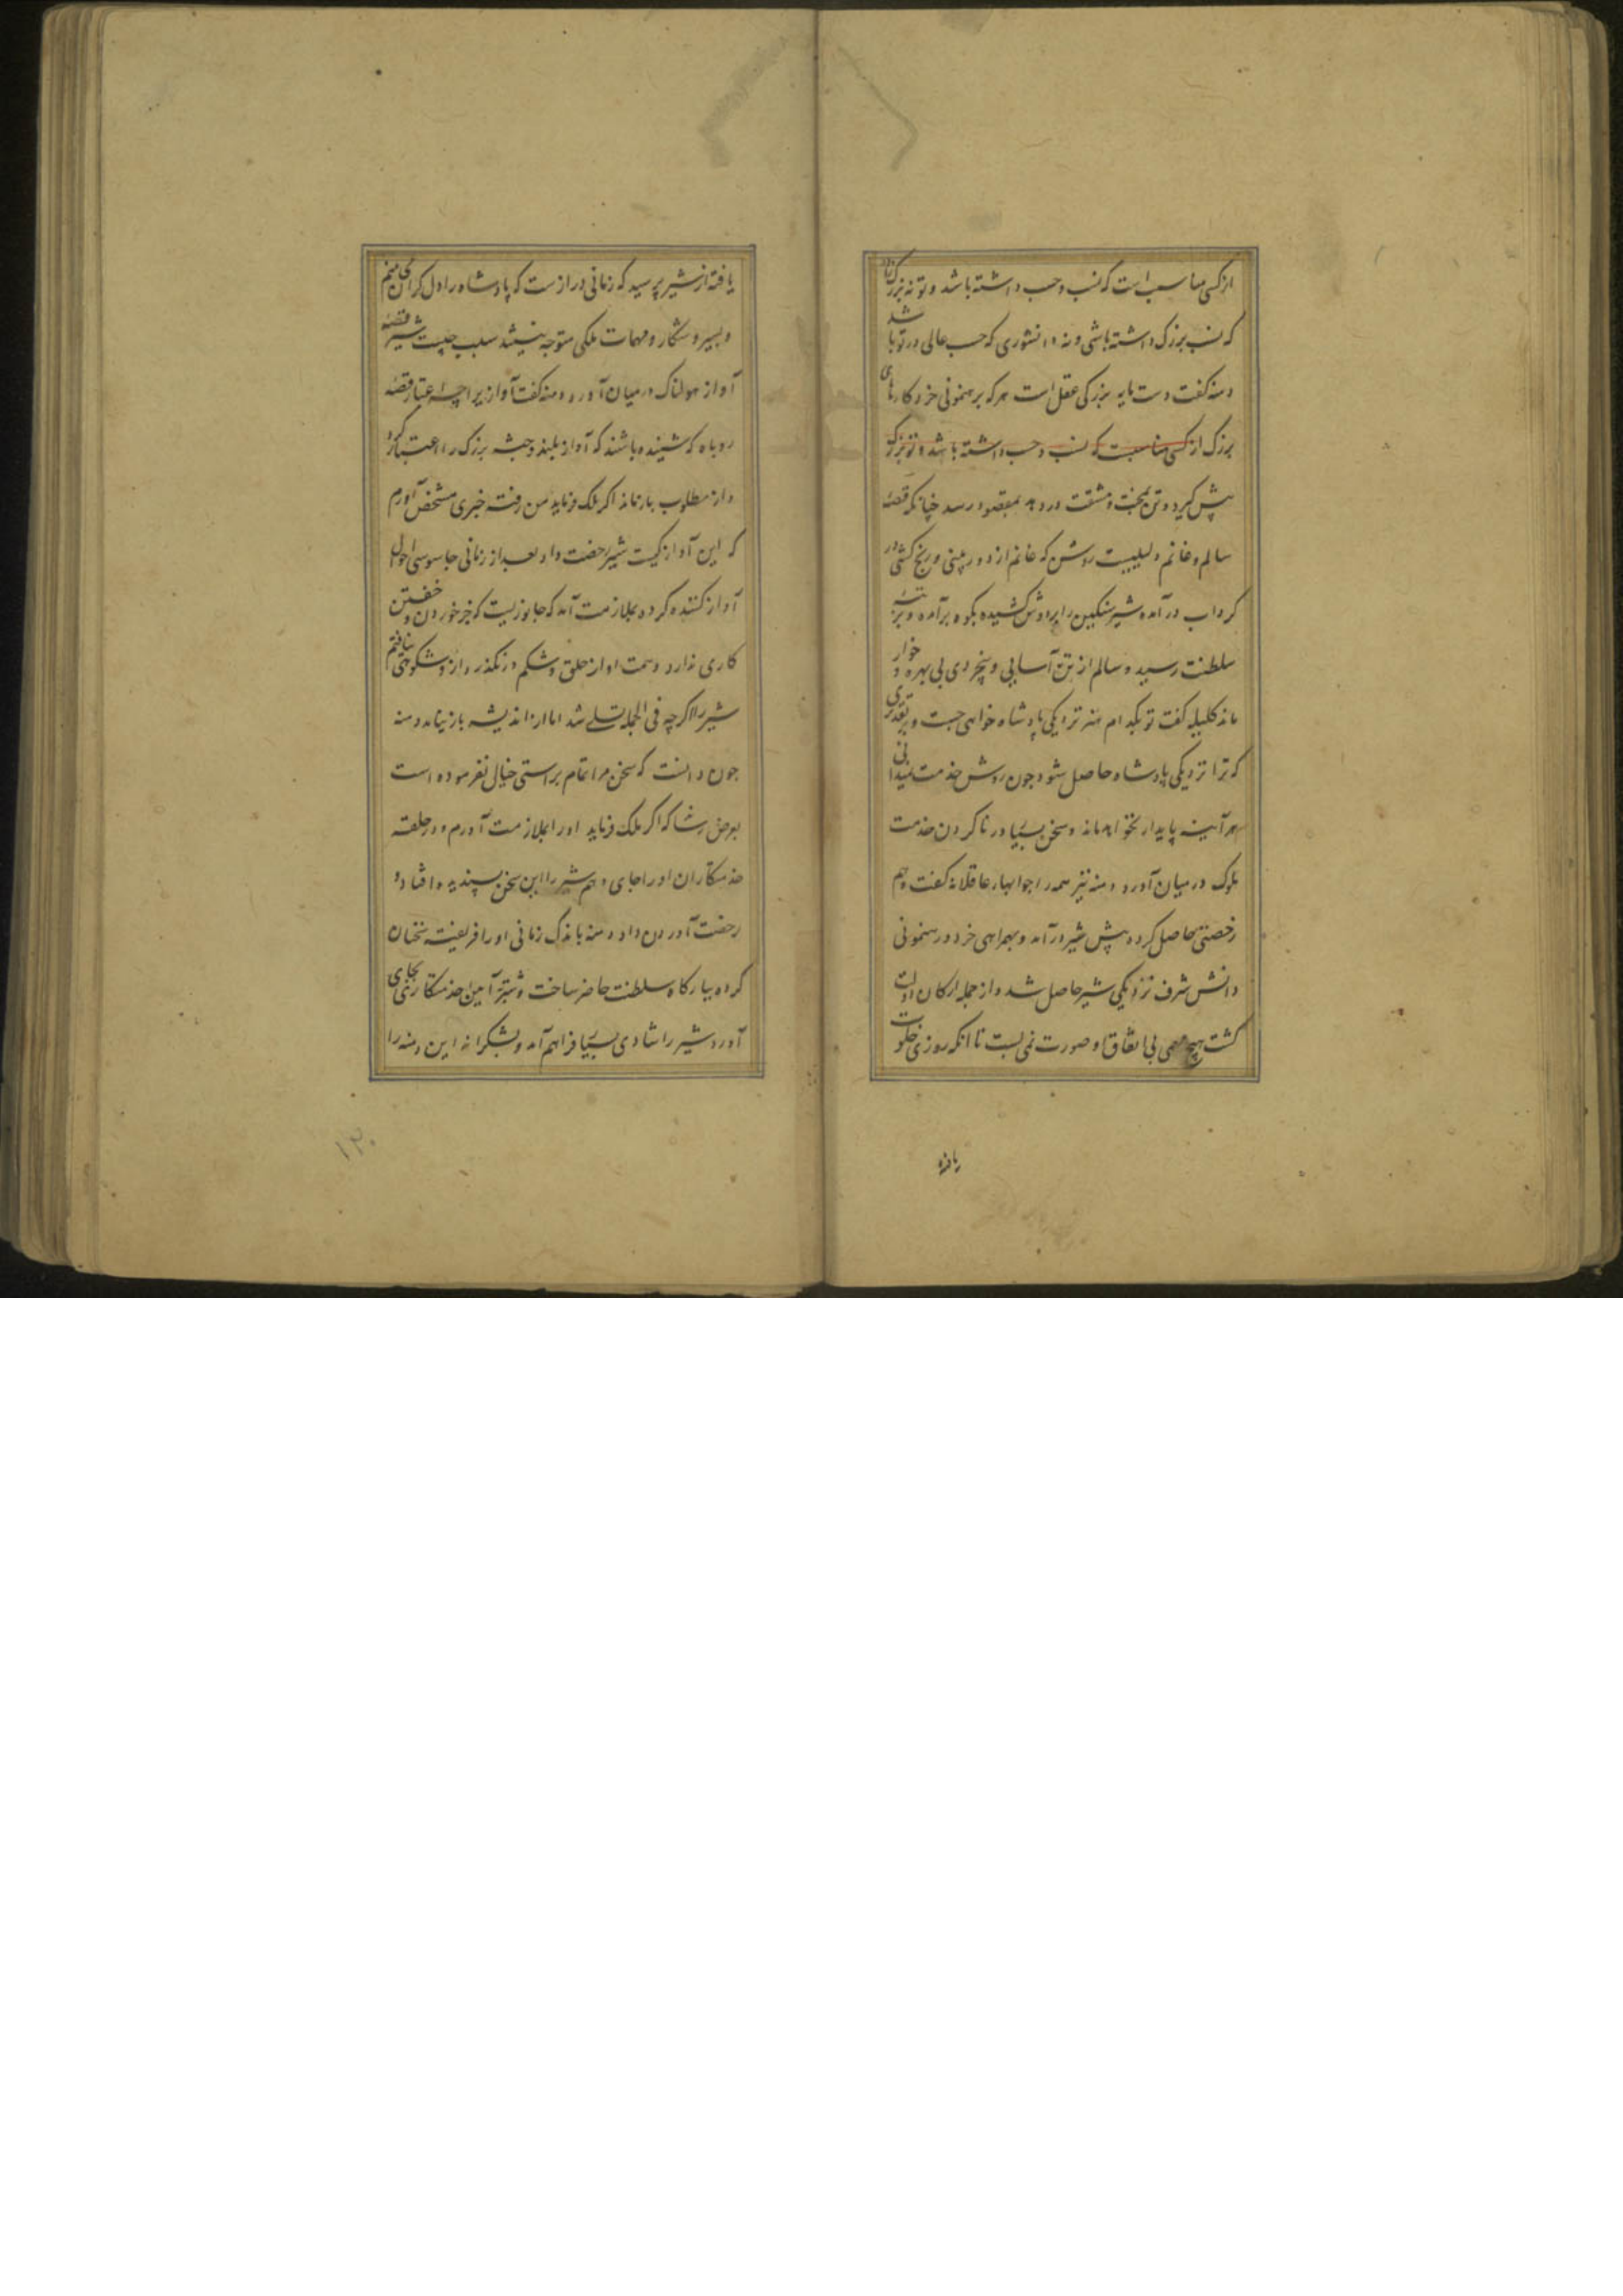 از کسی مناسب است که نسب و حسب داشته باشد و تو نه بزرک زاده
که نسب بزرک داشته باشی و نه دانشوری که حسب عالی در تو باشد
دمنه کفت دست مایه بزرکی عقل است هر که برهنمونی خرد کارهای
بزرک از کسی مناسبت که نسب و حسب داشته باشد و تو بزرک
پیش کیرد و تن بمحنت و مشقت در دهد بمقصود رسد چنانکه قصه
سالم و غانم دلیلیست روشن که غانم از دوربینی و رنج کشی در
کرداب در آمده شیر سنکین را بر دوش کشیده بکوه بر آمده و برتبه
سلطنت رسید و سالم از تن آسایی و بیخردی بی بهره و خوار
ماند کلیله کفت تو بکدام هنر نزدیکی پادشاه خواهی جست و بر تقدیری
که ترا نزدیکی پادشاه حاصل شود چون روش خدمت نمیدانی
هر آینه پایدار نخواهد ماند و سخن بسیار در ناکردن خدمت
ملوک در میان آورد دمنه نیز همه را جوابهاء عاقلانه کفت و هم
رخصتی حاصل کرده پیش شیر در آمد و بهمراهی خرد و رهنمونی
دانش شرف نزدیکی شیر حاصل شد و از جمله ارکان دولت
کشت هیچ مهمی بی اتفاق او صورت نمی بست تا انکه روزی خلوت
یافته
یافته از شیر پرسید که زمانی دراز ست که پادشاه را دل کران می بینم
و بسیر و شکار و مهمات ملکی متوجه نمیشد سبب چیست شیر قصه
آواز هولناک در میان آورد دمنه کفت آواز بر اچه اعتبار قصه
روباه که شنیده باشند که آواز بلند و جثه بزرک را اعتبار کرد
و از مطلوب باز ماند اکر ملک فرماید من رفته خبری مشخص آورم
که این آواز کیست شیر رخصت داد بعد از زمانی جاسوسی احوال
آواز کننده کرده بملازمت آمد که جانوریست که جز خوردن و خفتن
کاری ندارد و همت او از حلق و شکم در نکذرد از و شکوهی نیافتم
شیر را اکر چه فی الجمله تسلی شد اما از اندیشه باز نیامد دمنه
چون دانست که سخن مرا تمام براستی خیال نفرموده است
بعرض رساند که اکر ملک فرماید او را بملازمت آورم و در حلقه
خدمتکاران او را جای دهم شیر را این سخن پسندیده افتاد و
رخصت آوردن داد دمنه باندک زمانی او را فریفته سخنان
کرده ببارکاه سلطنت حاضر ساخت و شنزبه آیین خدمتکاری بجای
آورد شیر را شادی بسیار فراهم آمد و بشکرانه این دمنه را
۱۳۰